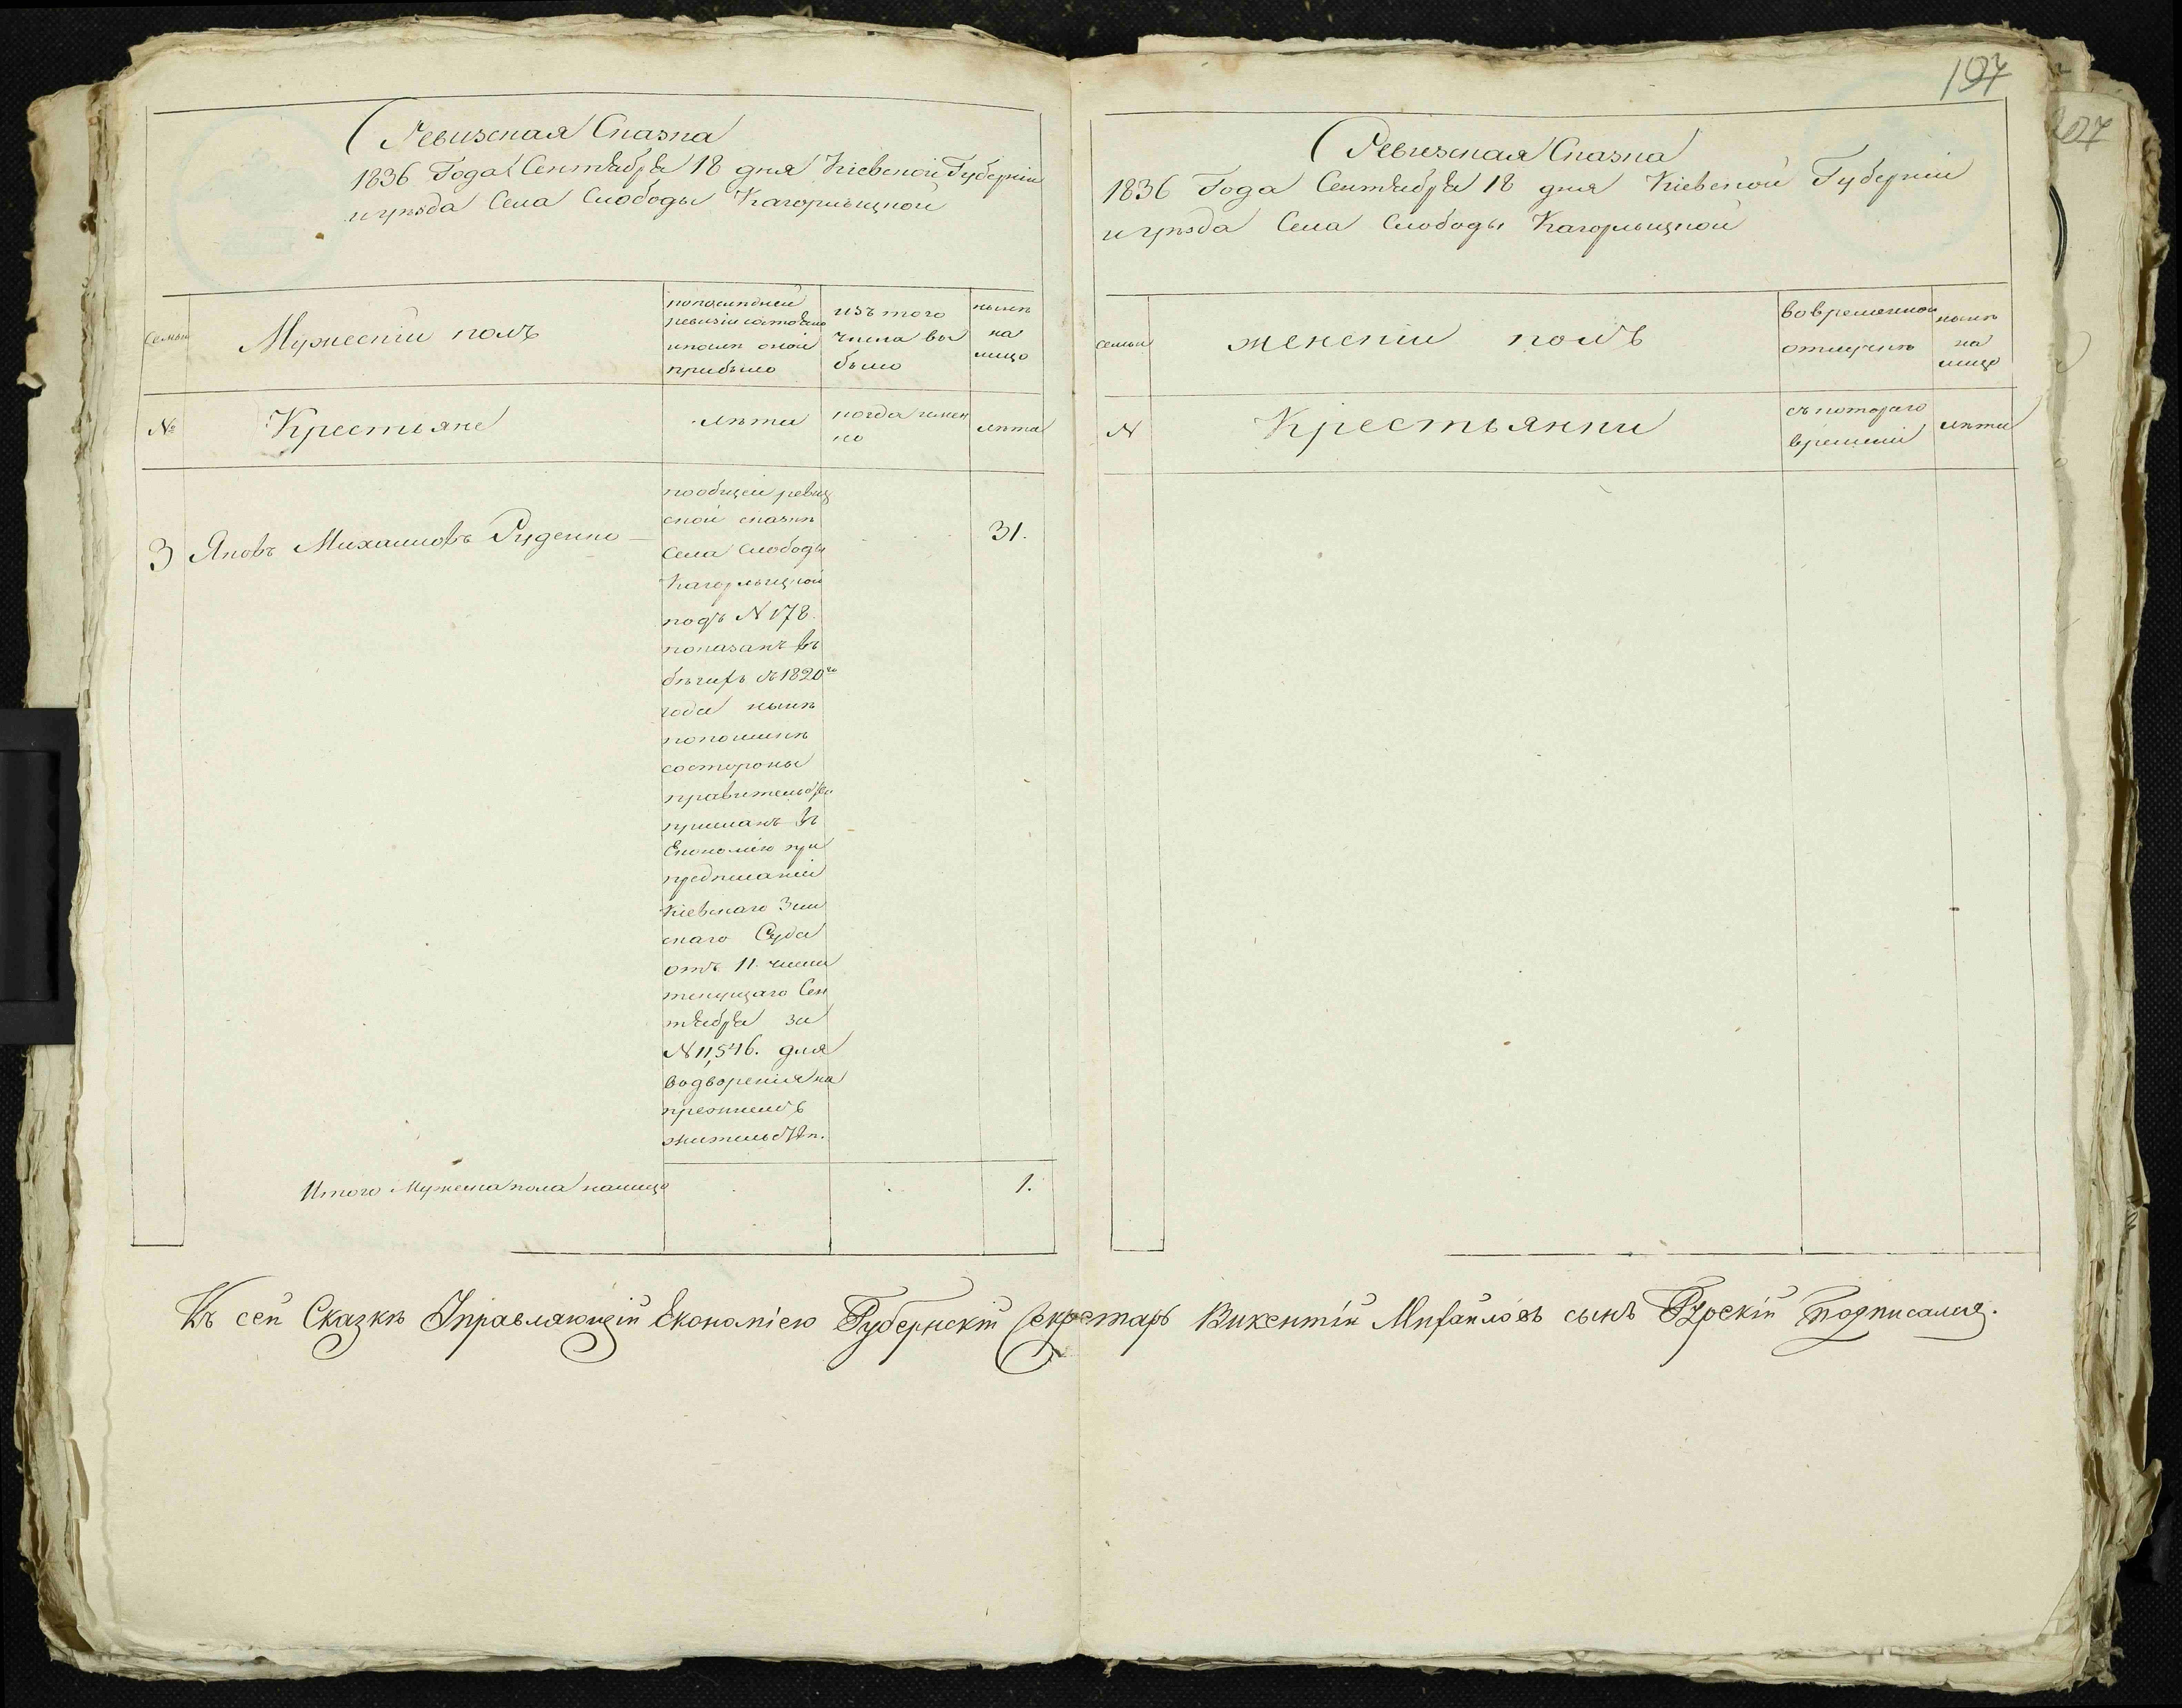 197
Ревизская Сказка
1836 Года Сентября 18 дня Кіевской Губерніи
и уезда Села Слободы Кагорлыцкой
Семьи
Мужескій полъ
по последней
ревизіи состояло
и после оной
прибыло
изъ того
числа вы
было
ныне
на
лицо
№
Крестьяне
лети
когда имен
но
лета
3
Яковъ Михайловъ Руденко
по общей ревиз
ской сказке
Села Слободы
Кагорлыцкой
подъ N 178.
показанъ въ
бегахъ съ 1820го
года ныне
по поимке
со стороны
правительства
присланъ въ
Економію при
предписаніи
Кіевскаго Зем
скаго Суда
отъ 11. числа
текущаго Сен
тября за
N 11,546. для
водворенія на
прежнемъ
жительстве.
31.
Итого Мужеска пола налицо
1.
Ревизская Сказка
1836 Года Сентября 18 дня Кіевской Губерніи
и уезда Села Слободы Кагорлыцкой
семьи
женскій полъ
во временной
отлучке
ныне
на
лицо
N
Крестьянки
съ котораго
времени
лети
Къ сей Сказке Управляющій Економіею Губернскій Секретарь Викентій Михайловъ сынъ подписался.